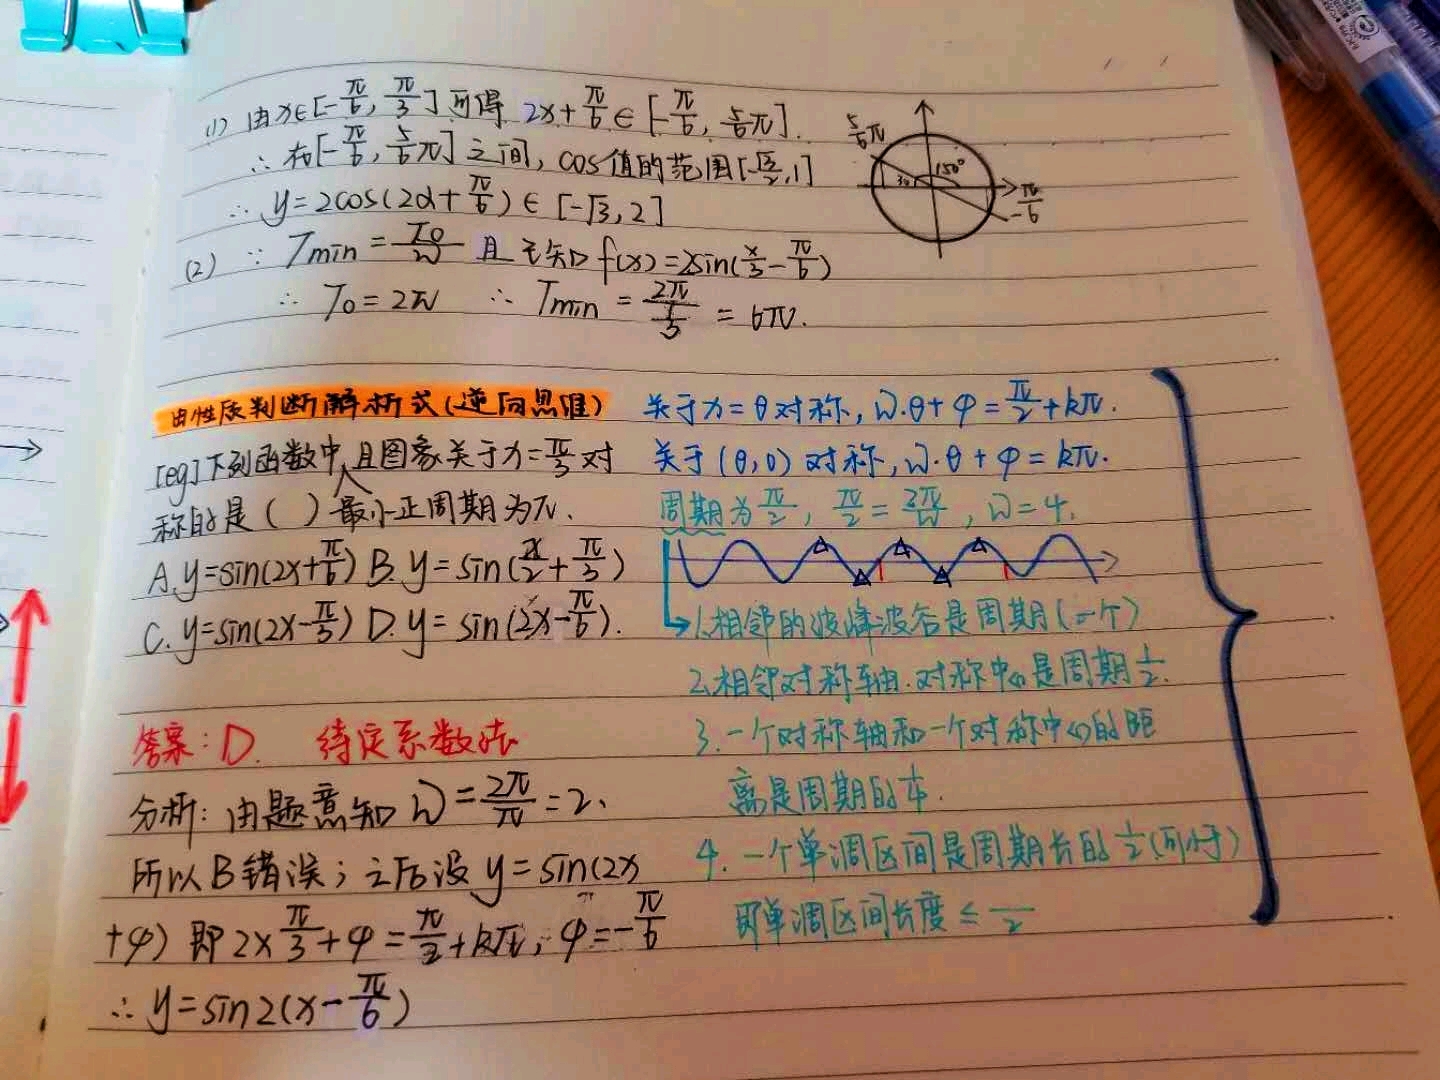 (1) 由x∈[-π/6, π/3]可得 2x+π/6∈[-π/6, 5/6π].
∴在[-π/6, 5/6π]之间, cos值的范围[-√3/2, 1]
∴ y=2cos(2α+π/6)∈[-√3, 2]
5/6π
150°
30
π/6
-
(2) ∵ Tmin = T0/ω 且已知f(x)=2sin(x/3-π/6)
∴ T0=2π ∴ Tmin = 2π/(1/3) = 6π.
由性质判断解析式(逆向思维)
[eg]下列函数中,且图象关于x=π/3对
称的是( ) 最小正周期为π.
A.y=sin(2x+π/6) B.y=sin(x/2+π/3)
C.y=sin(2x-π/3) D.y=sin(2x-π/6).
答案:D. 待定系数法
分析:由题意知 ω=2π/π=2、
所以B错误;之后设y=sin(2x
+φ) 即2×π/3+φ=π/2+kπ, φ=-π/6
∴ y=sin2(x-π/6)
关于x=θ对称, ω·θ+φ=π/2+kπ.
关于(θ,0)对称, ω·θ+φ=kπ.
周期为π/2, π/2=2π/ω, ω=4.
1.相邻的波峰波谷是周期(一个)
2.相邻对称轴.对称中心是周期1/2.
3.一个对称轴和一个对称中心的距
离是周期的1/4.
4.一个单调区间是周期长的1/2(可小于)
即单调区间长度≤ /2